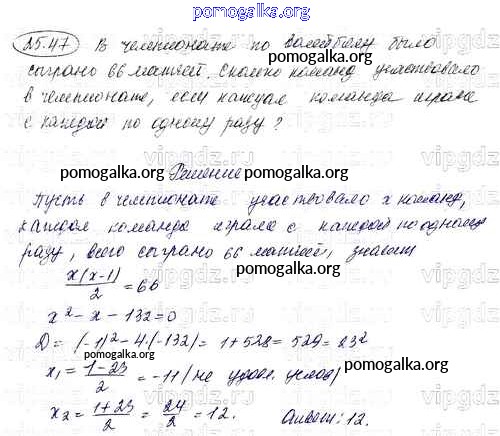 pomogalka.org
25.47 В чемпионате по волейболу было
сыграно 66 матчей. Сколько команд участвовало
в чемпионате, если каждая команда играла
с каждой по одному разу?
pomogalka.org
pomogalka.org
Решение
pomogalka.org
Пусть в чемпионате участвовало x команд,
каждая команда играла с каждой по одному
разу, всего сыграно 66 матчей, значит
pomogalka.org
x(x-1)/2 = 66
x² - x - 132 = 0
D = (-1)² - 4·(-132) = 1 + 528 = 529 = 23²
pomogalka.org
x₁ = (1-23)/2 = -11 (не удовл. услов)
pomogalka.org
x₂ = (1+23)/2 = 24/2 = 12. Ответ: 12.
pomogalka.org